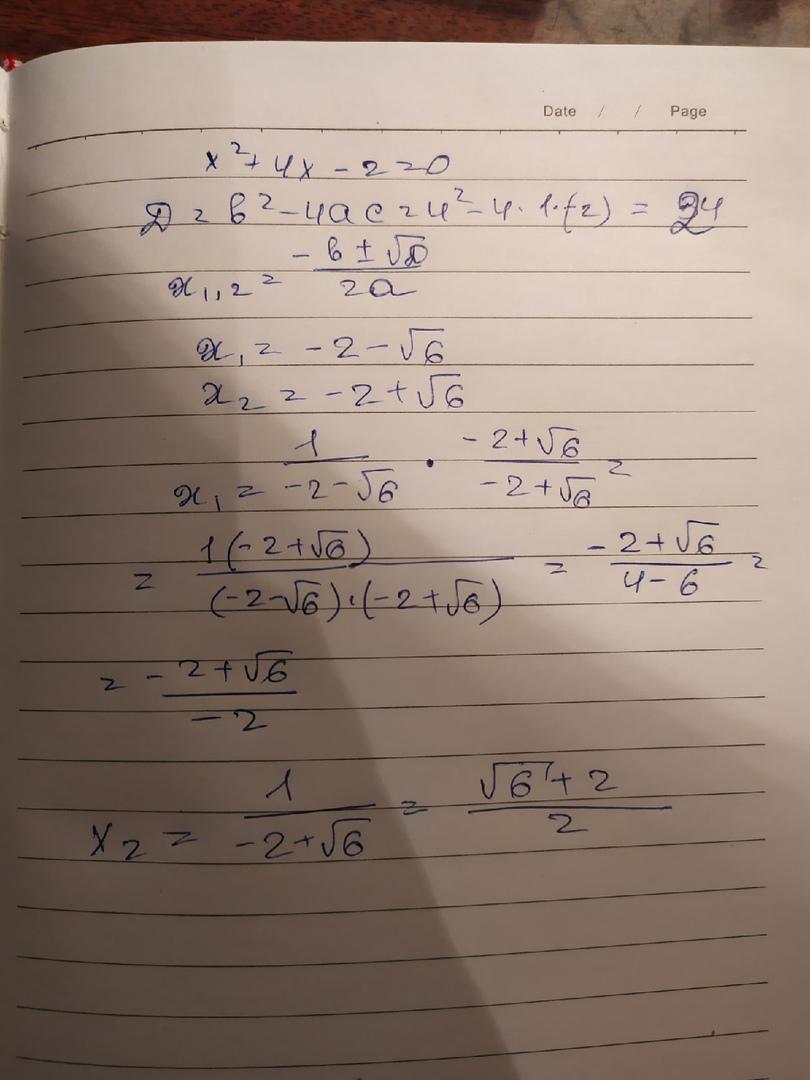 Date / / Page
x² + 4x - 2 = 0
D = b² - 4ac = 4² - 4 · 1 · (-2) = 24
x₁,₂ = (-b ± √D) / 2a
x₁ = -2 - √6
x₂ = -2 + √6
x₁ = 1 / (-2 - √6) · (-2 + √6) / (-2 + √6) =
= 1(-2 + √6) / (-2 - √6) · (-2 + √6) = (-2 + √6) / (4 - 6) =
= (-2 + √6) / -2
x₂ = 1 / (-2 + √6) = (√6 + 2) / 2